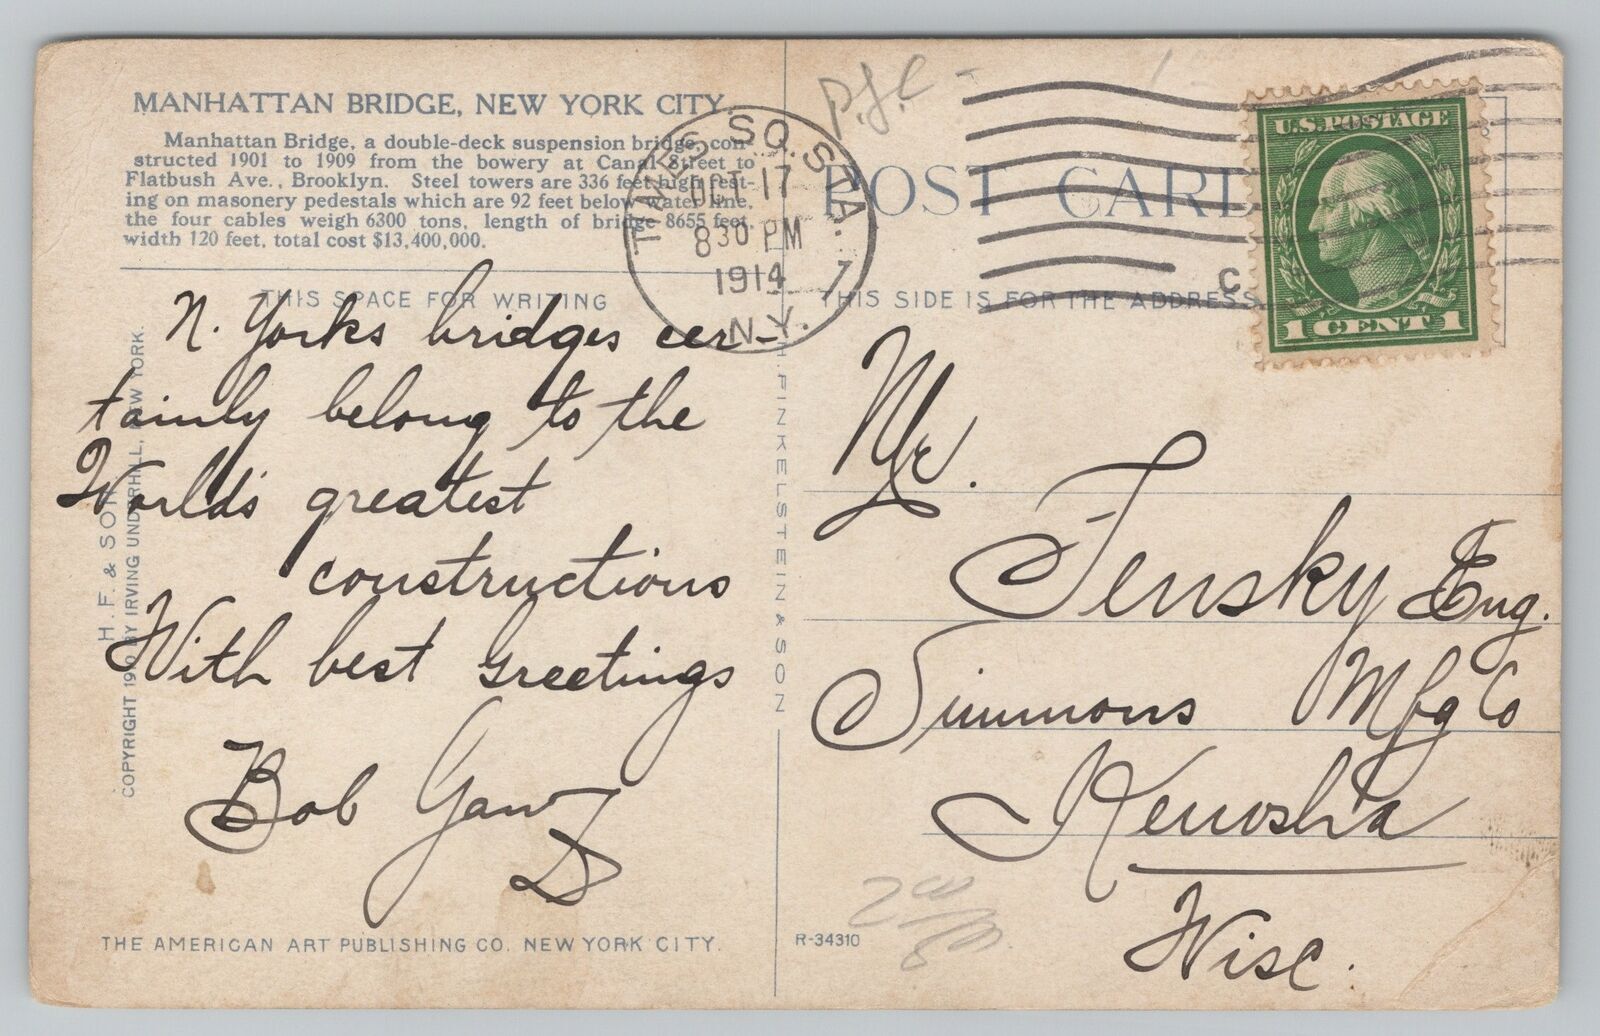 MANHATTAN BRIDGE, NEW YORK CITY.
Manhattan Bridge, a double-deck suspension bridge, con-
structed 1901 to 1909 from the bowery at Canal Street to
Flatbush Ave., Brooklyn. Steel towers are 336 feet high rest-
ing on masonery pedestals which are 92 feet below water line,
the four cables weigh 6300 tons, length of bridge 8655 feet,
width 120 feet, total cost $13,400,000.
THIS SPACE FOR WRITING
N. Yorks bridges cer-
tainly belong to the
World's greatest
constructions
With best greetings
Bob
H. F. & SON
COPYRIGHT BY IRVING UNDERHILL, NEW YORK.
THE AMERICAN ART PUBLISHING CO. NEW YORK CITY.
H. FINKELSTEIN & SON
TIMES SQ. STA.
OCT 17
830 PM
1914
N.Y.
7
C
POST CARD
THIS SIDE IS FOR THE ADDRESS
U.S. POSTAGE
1 CENT 1
Mr.
Jensky Eng.
Simmons Mfg Co
Kenosha
Wisc.
R-34310